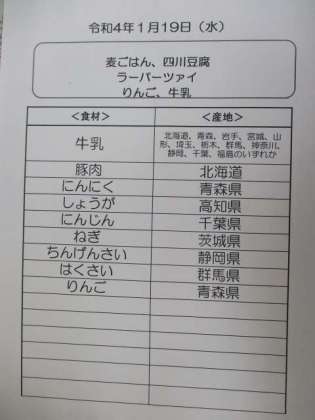 令和4年1月19日（水）
麦ごはん、四川豆腐
ラーパーツァイ
りんご、牛乳
＜食材＞ ＜産地＞
牛乳 北海道、青森、岩手、宮城、山
形、埼玉、栃木、群馬、神奈川、
静岡、千葉、福島のいずれか
豚肉 北海道
にんにく 青森県
しょうが 高知県
にんじん 千葉県
ねぎ 茨城県
ちんげんさい 静岡県
はくさい 群馬県
りんご 青森県